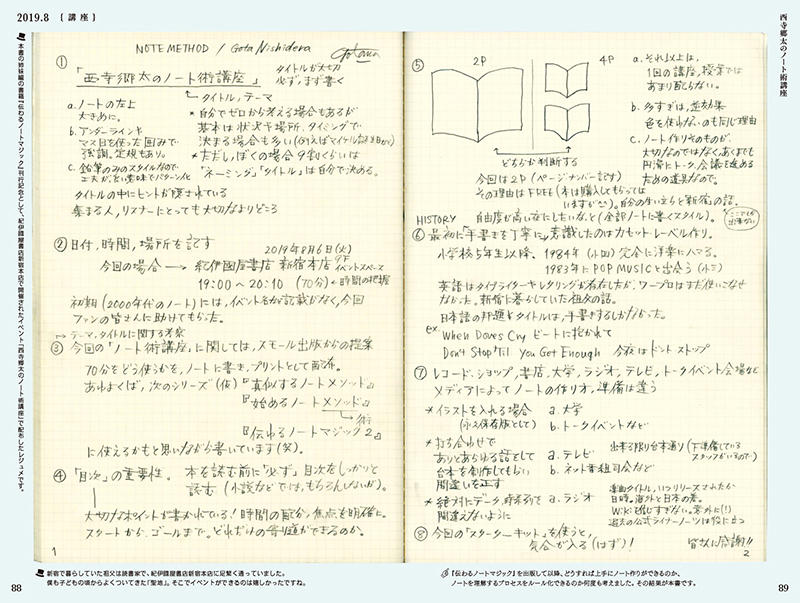 2019.8 [ 講座 ]
本書の姉妹編の書籍『伝わるノートマジック』刊行記念として、紀伊國屋書店新宿本店で開催されたイベント「西寺郷太のノート術講座」で配布したレジュメです。
NOTE METHOD / Gota Nishidera
①
「西寺郷太のノート術講座」
タイトルが大切
必ず、まず書く
↑タイトル、テーマ
a. ノートの左上
大きめに。
b. アンダーラインや
マス目を使った囲みで
強調。定規もあり。
c. 鉛筆のみのスタイルなので
工夫が、良い意味でパターン化
*自分でゼロから考える場合もあるが
基本は状況や場所、タイミングで
決まる場合も多い
*ただし、ぼくの場合 9割くらいは
"ネーミング"「タイトル」は自分で決める。
タイトルの中にヒントが隠されている
集まる人、リスナーにとっても大切なよりどころ
② 日付、時間、場所を記す
2019年8月6日(火)
今回の場合 → 紀伊國屋書店 新宿本店 9F イベントスペース
19:00 〜 20:10 (70分) ←時間の把握
初期 (2000年代のノート)には、イベント名が記載がなく、今回
ファンの皆さんに助けてもらった。
→テーマ、タイトルに関する考察
③ 今回の「ノート術講座」に関しては、スモール出版からの提案
70分をどう使うかを、ノートに書き、プリントとして配布。
あわよくば、次のシリーズ(仮)『真似するノートメソッド』
『始めるノートメソッド』
→術
『伝わるノートマジック2』
に使えるかもと思いながら書いています(笑)。
④ 「目次」の重要性。 本を読む前に「必ず」目次をしっかりと
読む (小説などでは、もちろんしないが)。
大切なポイントが書かれている! 時間の配分、焦点を明確に。
スタートから、ゴールまで。どれだけの寄り道ができるのか。
1
88
新宿で暮らしていた祖父は読書家で、紀伊國屋書店新宿本店に足繁く通っていました。
僕も子どもの頃からよくついてきた「聖地」。そこでイベントができるのは嬉しかったですね。
西寺郷太のノート術講座
⑤
2P
4P
a. それ以上は、
1回の講座、授業では
あまり配らない。
b. 多すぎは、逆効果
色を使わないのも同じ理由
c. ノート作りそのものが、
大切なのではなく、あくまでも
円滑にトーク、会議を進める
ための道具なので。
どちらか判断する
今回は2P (ページナンバー記す)
その理由はFREE (本は購入してもらって
いますが^^)。自分の生い立ちと「新宿」の話。
自由度が高い会にしたいな、と (全部ノートに書くスタイル)。
HISTORY
⑥ 最初に「手書きを丁寧に」意識したのはカセット・レーベル作り。
小学校5年生以降、1984年 (小四) 完全に洋楽にハマる。
1983年にPOP MUSICと出会う (小三)
英語はタイプライターやレタリングが存在したが、ワープロはまだ使いこなせ
なかった。新宿に暮らしていた祖父の話。
日本語の邦題やタイトルは、手書きするしかなかった。
ex. When Doves Cry ビートに抱かれて
Don't Stop 'Til You Get Enough 今夜はドント・ストップ
⑦ レコード、ショップ、書店、大学、ラジオ、テレビ、トークイベント会場など
メディアによってノートの作り方、準備は違う
*イラストを入れる場合 a. 大学
(永久保存版として) b. トークイベントなど
*打ち合わせで
ありとあらゆる話として
台本を創作してもらい
間違いを正す
a. テレビ
b. ネット番組司会など
出来る限り台本通り (下準備している
スタッフがいるので)
*絶対にデータ、時系列を
間違えないように
a. ラジオ
楽曲タイトル、いつリリースされたか
日時。海外と日本の差。
Wikiを信じすぎない。案外に(!)
過去の公式ライナーノーツは役に立つ
⑧ 今回の"スターターキット"を使うと、
気合が入る(はず)!
皆様に感謝!!
2
『伝わるノートマジック』を出版して以降、どうすれば上手にノート作りができるのか、
ノートを理解するプロセスをルール化できるのか何度も考えました。その結果が本書です。
89